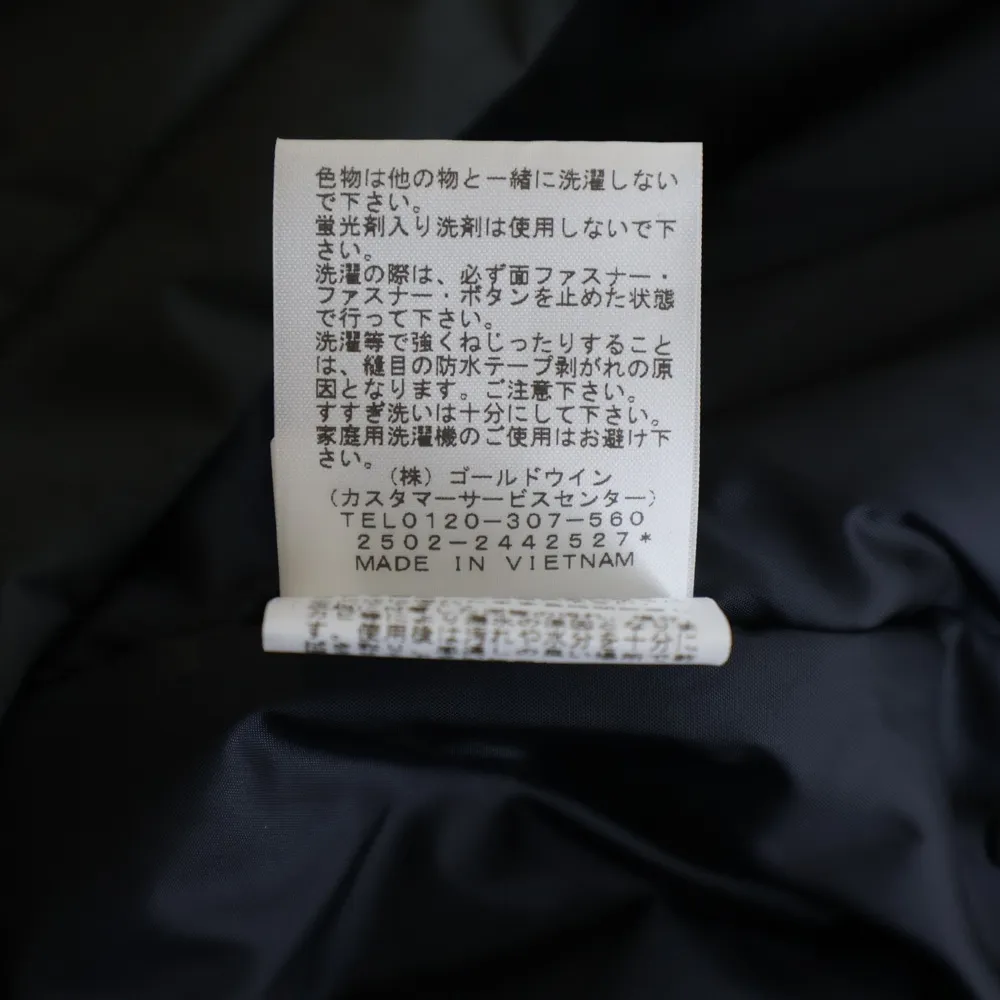 色物は他の物と一緒に洗濯しない
で下さい。
蛍光剤入り洗剤は使用しないで下
さい。
洗濯の際は、必ず面ファスナー・
ファスナー・ボタンを止めた状態
で行って下さい。
洗濯等で強くねじったりすること
は、縫目の防水テープ剥がれの原
因となります。ご注意下さい。
すすぎ洗いは十分にして下さい。
家庭用洗濯機のご使用はお避け下
さい。
（株）ゴールドウイン
（カスタマーサービスセンター）
TEL0120-307-560
2502-2442527*
MADE IN VIETNAM